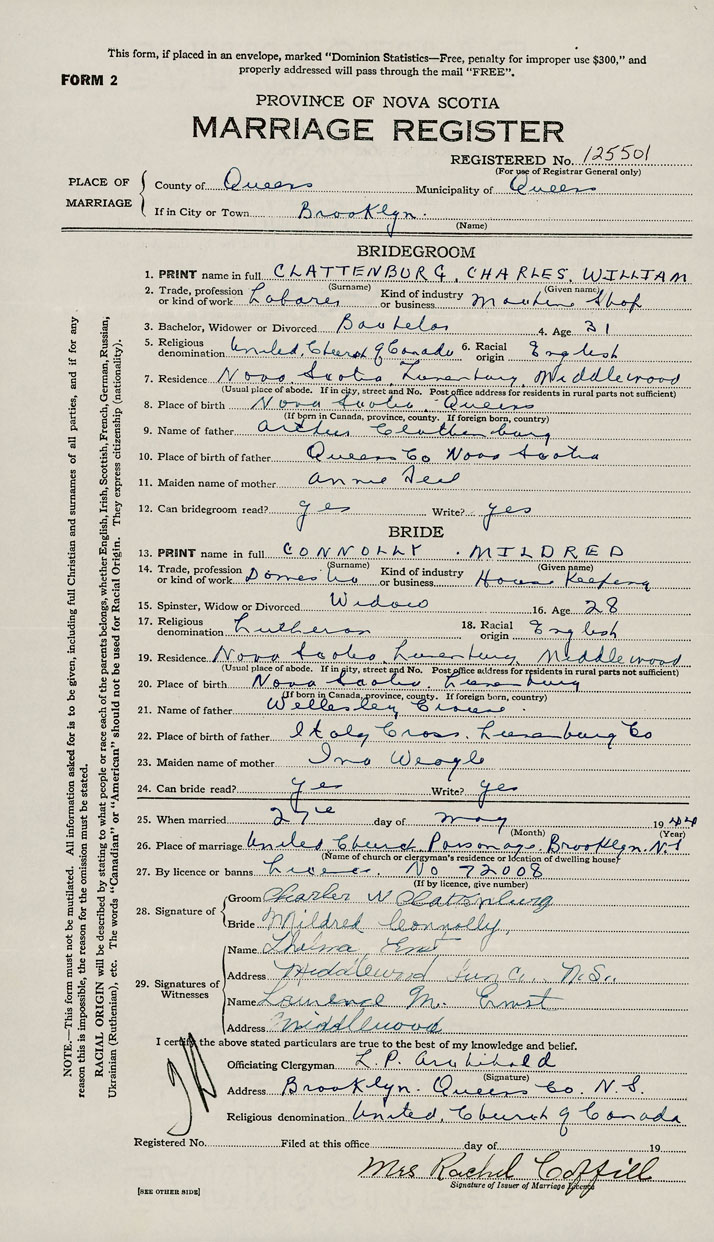 This form, if placed in an envelope, marked "Dominion Statistics—Free, penalty for improper use $300," and
properly addressed will pass through the mail "FREE".
FORM 2
PROVINCE OF NOVA SCOTIA
MARRIAGE REGISTER
REGISTERED No. 125501
(For use of Registrar General only)
PLACE OF MARRIAGE
County of Queens Municipality of Queens
If in City or Town Brooklyn.
(Name)
BRIDEGROOM
1. PRINT name in full CLATTENBURG, CHARLES, WILLIAM
(Surname) (Given name)
2. Trade, profession or kind of work Labarer Kind of industry or business Machine Shop
3. Bachelor, Widower or Divorced Bachelor 4. Age 31
5. Religious denomination United Church of Canada 6. Racial origin English
7. Residence Nova Scotia, Lunenburg, Middlewood
(Usual place of abode. If in city, street and No. Post office address for residents in rural parts not sufficient)
8. Place of birth Nova Scotia, Queens
(If born in Canada, province, county. If foreign born, country)
9. Name of father Arthur Clattenburg
10. Place of birth of father Queens Co Nova Scotia
11. Maiden name of mother Annie
12. Can bridegroom read? yes Write? yes
BRIDE
13. PRINT name in full CONNOLLY . MILDRED
(Surname) (Given name)
14. Trade, profession or kind of work Domestic Kind of industry or business House Keeping
15. Spinster, Widow or Divorced Widow 16. Age 28
17. Religious denomination Lutheran 18. Racial origin English
19. Residence Nova Scotia, Lunenburg, Middlewood
(Usual place of abode. If in city, street and No. Post office address for residents in rural parts not sufficient)
20. Place of birth Nova Scotia, Lunenburg
(If born in Canada, province, county. If foreign born, country)
21. Name of father Wellesley Crouse
22. Place of birth of father Italy Cross. Lunenburg Co
23. Maiden name of mother Ina Weagle
24. Can bride read? yes Write? yes
25. When married 27th day of May 1944
(Month) (Year)
26. Place of marriage United Church Parsonage. Brooklyn. N.S
(Name of church or clergyman's residence or location of dwelling house)
27. By licence or banns Licence. No 72008
(If by licence, give number)
28. Signature of
Groom Charles W Clattenburg
Bride Mildred Connolly.
29. Signatures of Witnesses
Name Thelma Ernst
Address Middlewood Lun Co. N.S.
Name Laurence M. Ernst
Address Middlewood
I certify the above stated particulars are true to the best of my knowledge and belief.
Officiating Clergyman L. P. Archibald
(Signature)
Address Brooklyn. Queens Co. N.S.
Religious denomination United Church of Canada
Registered No. Filed at this office day of 19
Mrs Rachel Coffill
Signature of Issuer of Marriage Licence
[SEE OTHER SIDE]
NOTE.—This form must not be mutilated. All information asked for is to be given, including full Christian and surnames of all parties, and if for any
reason this is impossible, the reason for the omission must be stated.
RACIAL ORIGIN will be described by stating to what people or race each of the parents belongs, whether English, Irish, Scottish, French, German, Russian,
Ukrainian (Ruthenian), etc. The words "Canadian" or "American" should not be used for Racial Origin. They express citizenship (nationality).